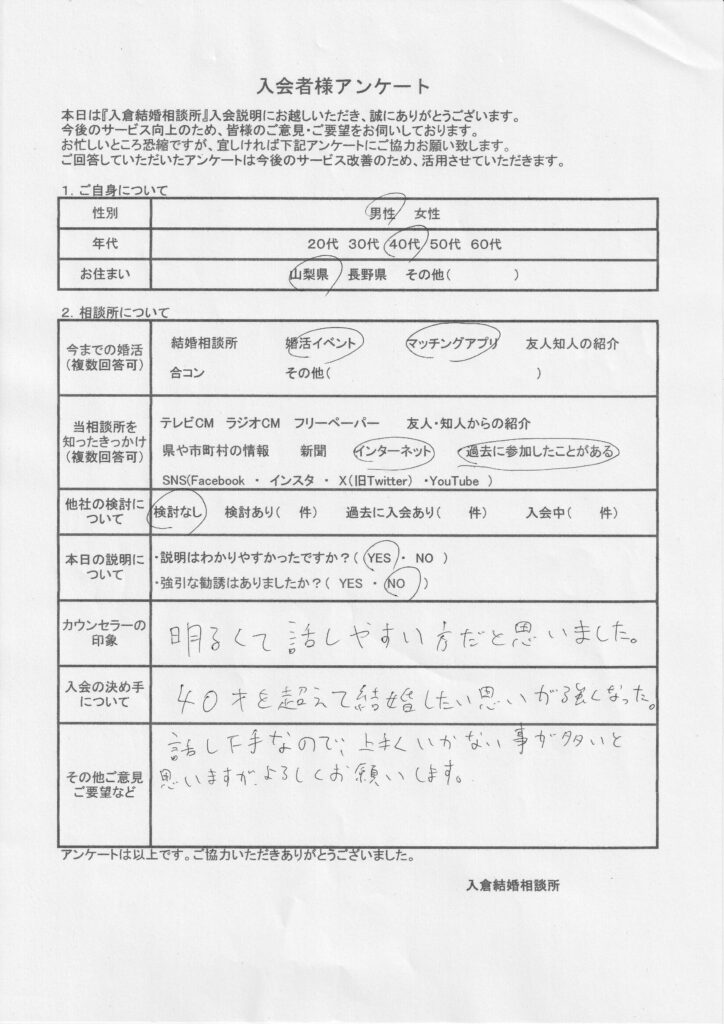 入会者様アンケート
本日は『入倉結婚相談所』入会説明にお越しいただき、誠にありがとうございます。
今後のサービス向上のため、皆様のご意見・ご要望をお伺いしております。
お忙しいところ恐縮ですが、宜しければ下記アンケートにご協力お願い致します。
ご回答していただいたアンケートは今後のサービス改善のため、活用させていただきます。
1．ご自身について
性別 男性 女性
年代 20代 30代 40代 50代 60代
お住まい 山梨県 長野県 その他( )
2．相談所について
今までの婚活
(複数回答可)
結婚相談所 婚活イベント マッチングアプリ 友人知人の紹介
合コン その他( )
当相談所を
知ったきっかけ
(複数回答可)
テレビCM ラジオCM フリーペーパー 友人・知人からの紹介
県や市町村の情報 新聞 インターネット 過去に参加したことがある
SNS(Facebook ・ インスタ ・ X(旧Twitter) ・YouTube )
他社の検討に
ついて
検討なし 検討あり( 件) 過去に入会あり( 件) 入会中( 件)
本日の説明に
ついて
・説明はわかりやすかったですか？( YES ・ NO )
・強引な勧誘はありましたか？( YES ・ NO )
カウンセラーの
印象
明るくて話しやすい方だと思いました。
入会の決め手
について
40才を超えて結婚したい思いが強くなった。
その他ご意見
ご要望など
話し下手なので、上手くいかない事が多いと
思いますが、よろしくお願いします。
アンケートは以上です。ご協力いただきありがとうございました。
入倉結婚相談所